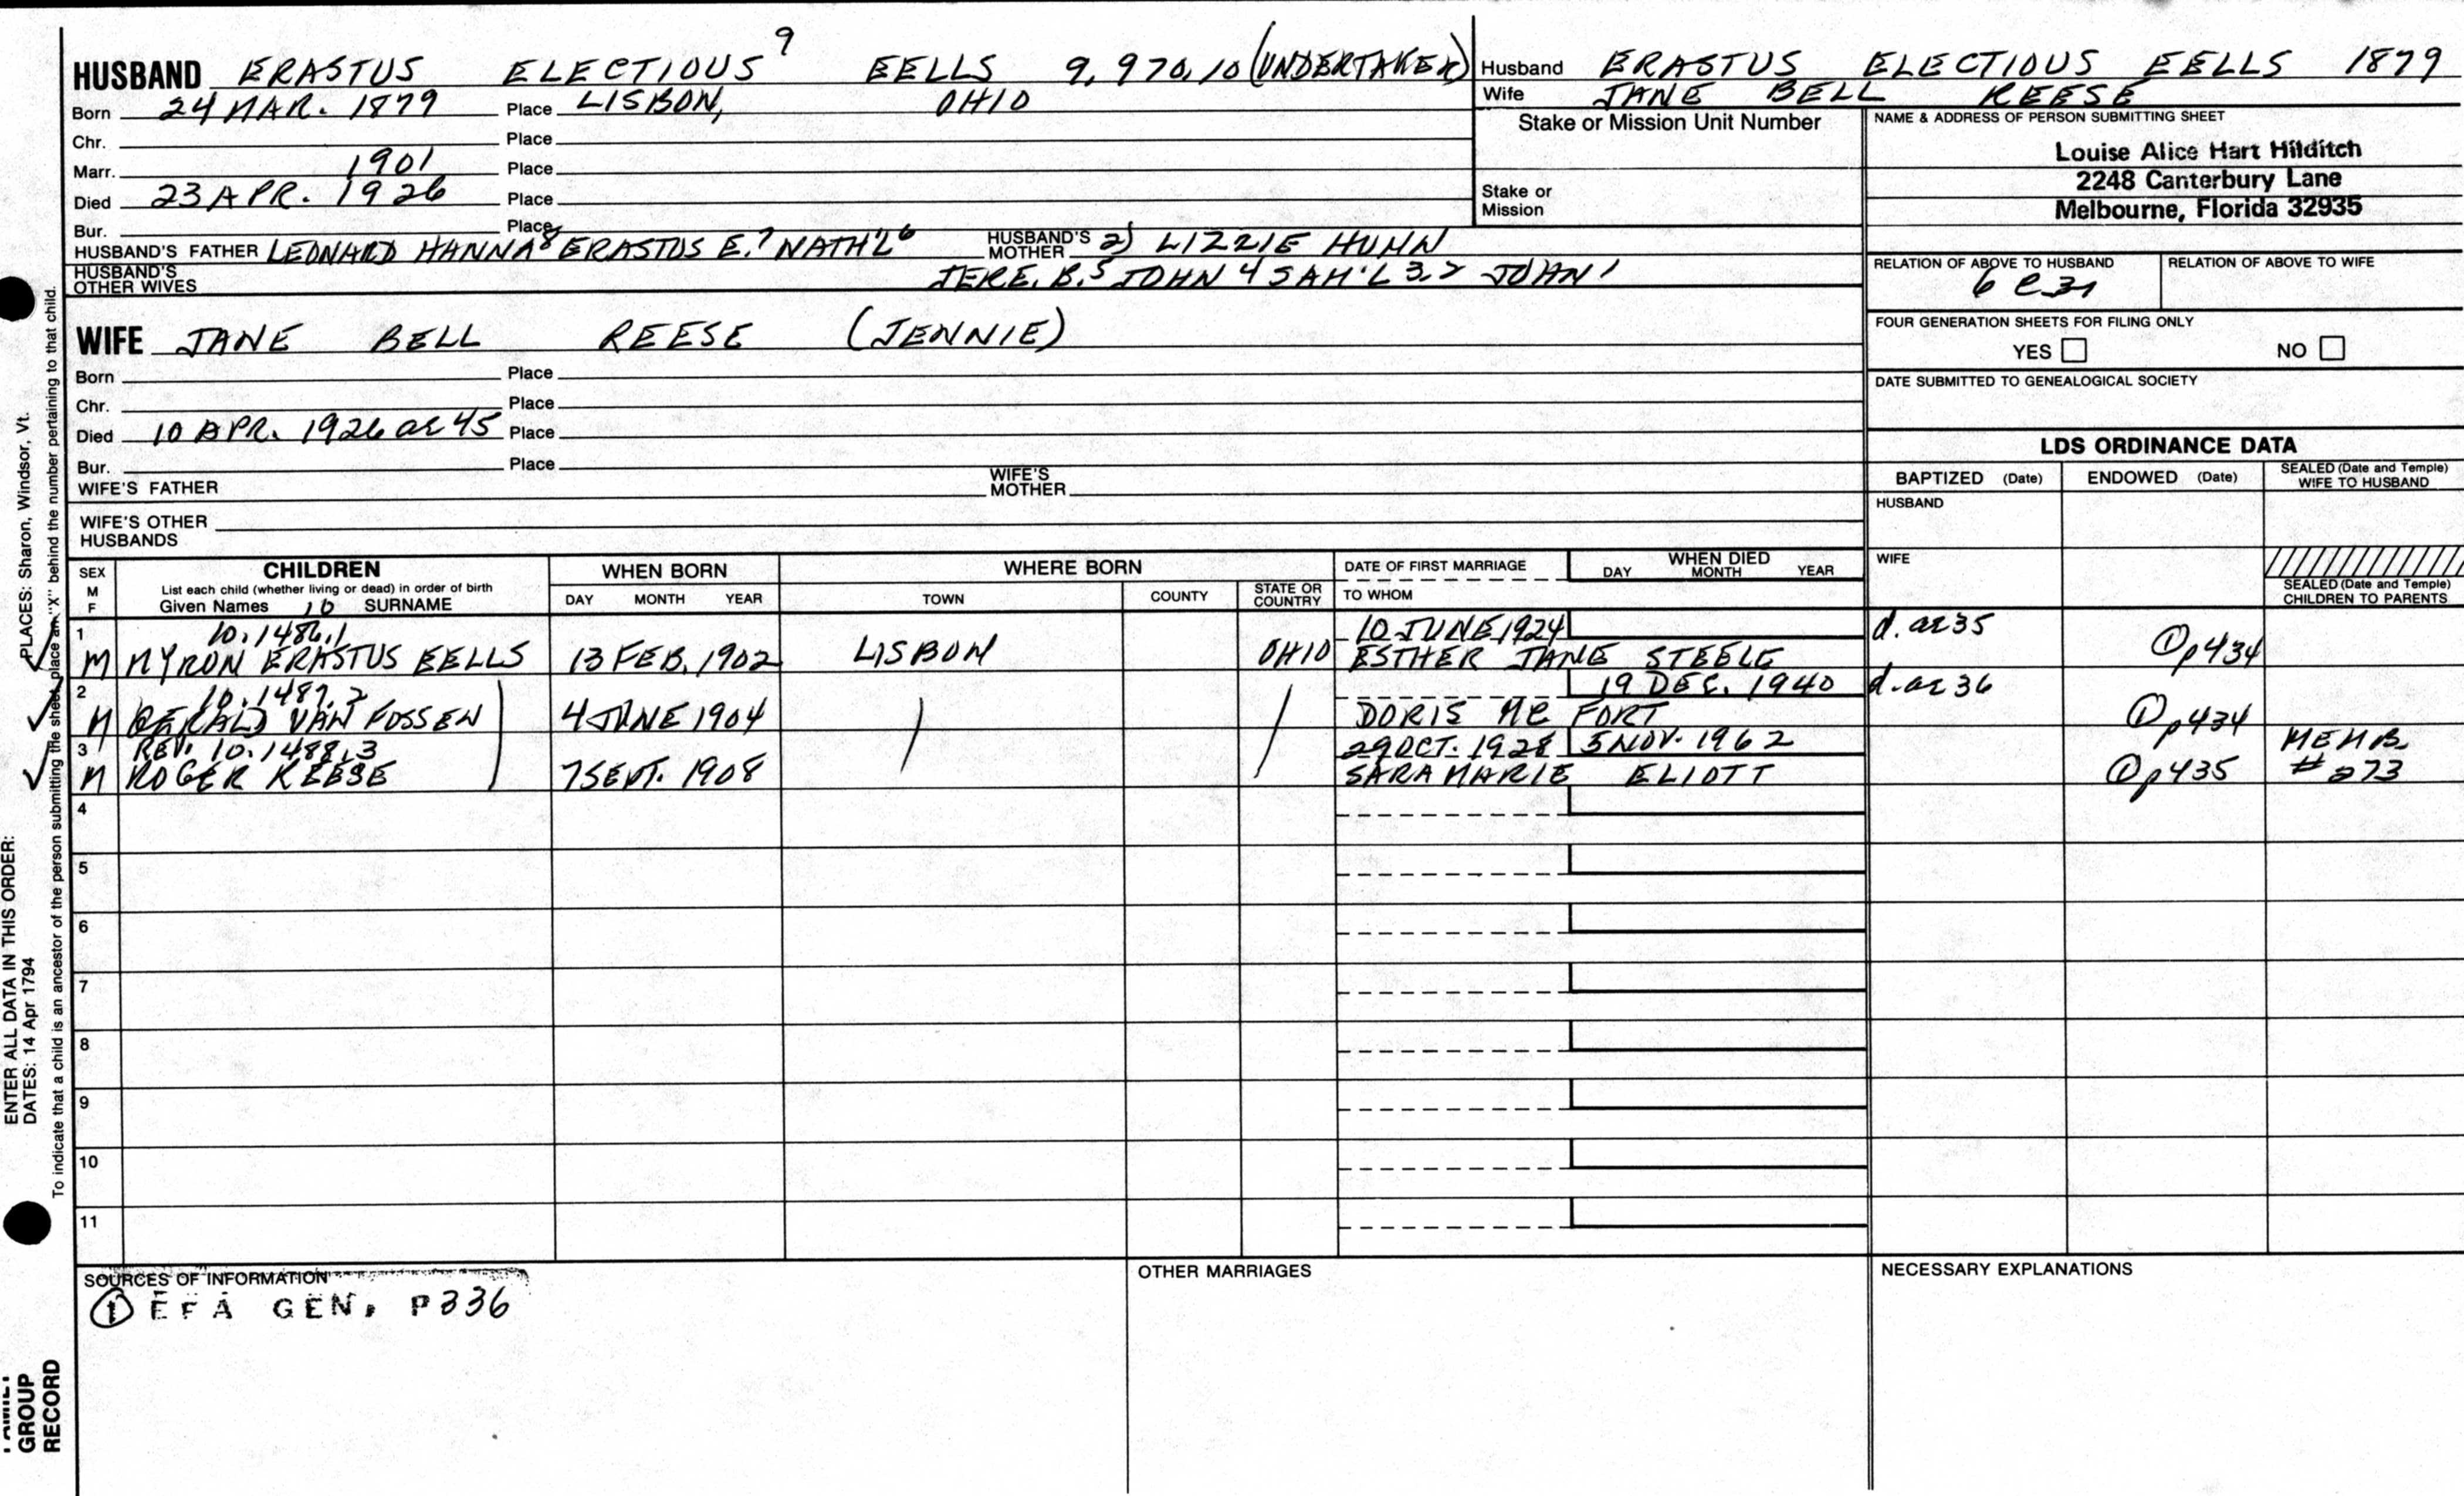 HUSBAND ERASTUS ELECTIOUS 9 EELLS 9,970,10 (UNDERTAKER)
Born 24 MAR. 1879 Place LISBON, OHIO
Chr. Place
Marr. 1901 Place
Died 23 APR. 1926 Place
Bur. Place
HUSBAND'S FATHER LEONARD HANNA 8 ERASTUS E. 7 NATH'L 6 HUSBAND'S MOTHER 2) LIZZIE HUNN
HUSBAND'S OTHER WIVES JERE. B. 5 JOHN 4 SAM'L 3,2 JOHN 1
WIFE JANE BELL REESE (JENNIE)
Born Place
Chr. Place
Died 10 APR. 1926 ae 45 Place
Bur. Place
WIFE'S FATHER WIFE'S MOTHER
WIFE'S OTHER HUSBANDS
Husband ERASTUS ELECTIOUS EELLS 1879
Wife JANE BELL REESE
Stake or Mission Unit Number
Stake or Mission
NAME & ADDRESS OF PERSON SUBMITTING SHEET
Louise Alice Hart Hilditch
2248 Canterbury Lane
Melbourne, Florida 32935
RELATION OF ABOVE TO HUSBAND RELATION OF ABOVE TO WIFE
FOUR GENERATION SHEETS FOR FILING ONLY
YES NO
DATE SUBMITTED TO GENEALOGICAL SOCIETY
LDS ORDINANCE DATA
BAPTIZED (Date) ENDOWED (Date) SEALED (Date and Temple) WIFE TO HUSBAND
HUSBAND
WIFE
SEALED (Date and Temple) CHILDREN TO PARENTS
SEX M F CHILDREN WHEN BORN WHERE BORN DATE OF FIRST MARRIAGE WHEN DIED
List each child (whether living or dead) in order of birth
Given Names 10 SURNAME DAY MONTH YEAR TOWN COUNTY STATE OR COUNTRY TO WHOM DAY MONTH YEAR
1 10.1486.1 10 JUNE 1924 d. ae 35
M MYRON ERASTUS EELLS 13 FEB. 1902 LISBON OHIO ESTHER JANE STEELE ① p434
2 10.1487.2 19 DEC. 1940 d. ae 36
M GERALD VAN FOSSEN 4 JUNE 1904 DORIS MC FORT ① p434
3 REV. 10.1488.3 29 OCT. 1928 5 NOV. 1962 MEMB.
M ROGER REESE 7 SEPT. 1908 SARA MARIE ELIOTT ① p435 #273
4
5
6
7
8
9
10
11
SOURCES OF INFORMATION OTHER MARRIAGES NECESSARY EXPLANATIONS
① EFA GEN, P336
ENTER ALL DATA IN THIS ORDER:
DATES: 14 Apr 1794 PLACES: Sharon, Windsor, Vt.
To indicate that a child is an ancestor of the person submitting the sheet, place an "X" behind the number pertaining to that child.
FAMILY GROUP RECORD